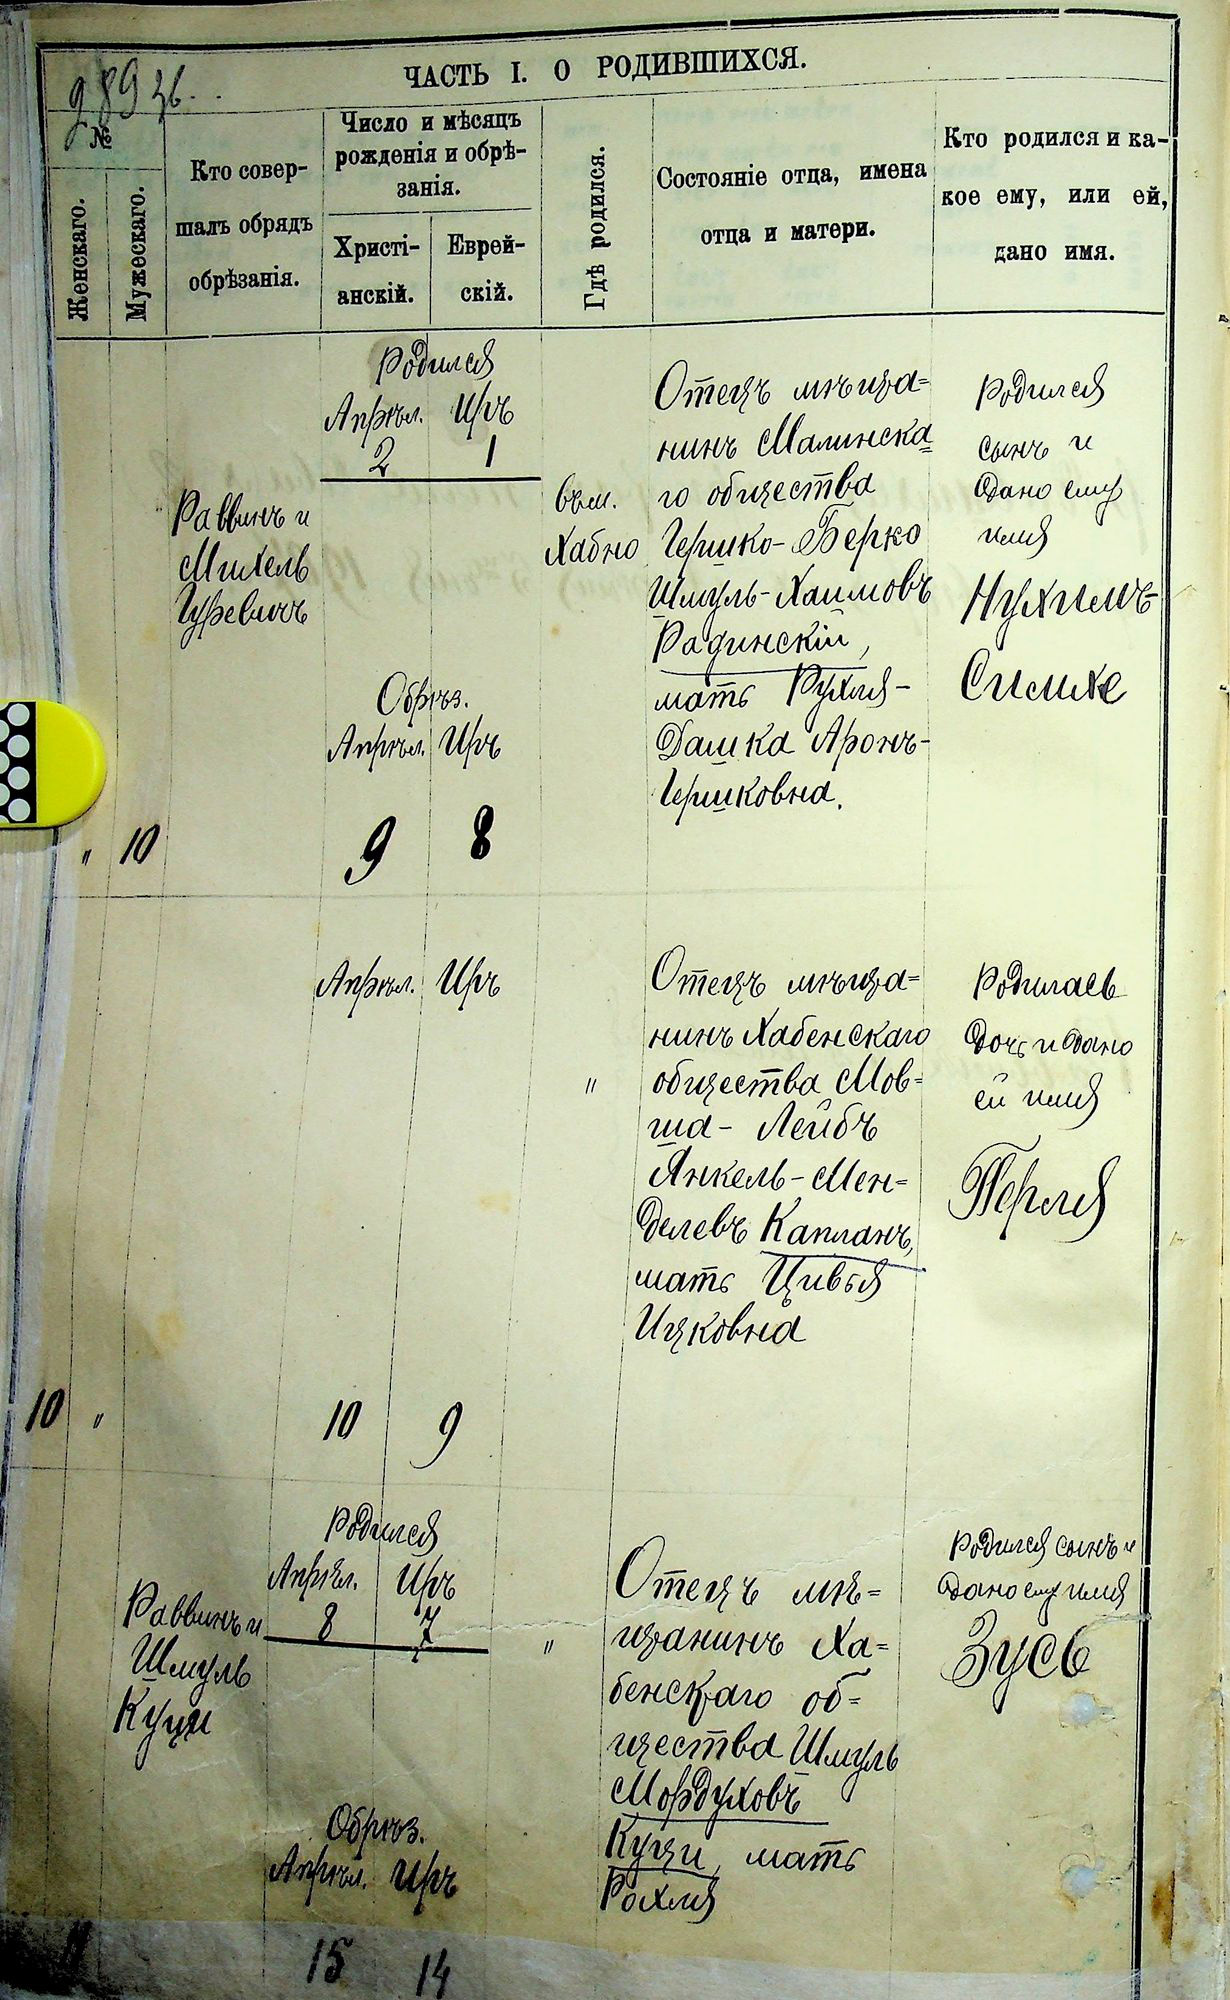 ЧАСТЬ I. О РОДИВШИХСЯ.
№
Женскаго.
Мужескаго.
Кто совер-
шалъ обрядъ
обрѣзанія.
Число и мѣсяцъ
рожденія и обрѣ-
занія.
Христі-
анскій.
Еврей-
скій.
Гдѣ родился.
Состояніе отца, имена
отца и матери.
Кто родился и ка-
кое ему, или ей,
дано имя.
" 10
Раввинъ и
Михель
Гуревичъ
Родился
Апрѣл. Иръ
2 1
Обрѣз.
Апрѣл. Иръ
9 8
въ м.
Хабно
Отецъ мѣща=
нинъ Малинска=
го общества
Гершко-Берко
Шмуль-Хаимовъ
Радинскій,
мать Рухля-
Дашка Аронъ-
Гершковна.
Родился
сынъ и
дано ему
имя
Нухимъ-
Симхе
10 "
Апрѣл. Иръ
10 9
"
Отецъ мѣща=
нинъ Хабенскаго
общества Мов=
ша-Лейбъ
Янкель-Мен=
делевъ Капланъ,
мать Цивья
Ицковна
Родилась
дочь и дано
ей имя
Перля
11
Раввинъ и
Шмуль
Куци
Родился
Апрѣл. Иръ
8 7
Обрѣз.
Апрѣл. Иръ
15 14
"
Отецъ мѣ=
щанинъ Ха=
бенскаго об=
щества Шмуль
Мордуховъ
Куци, мать
Рохля
Родился сынъ и
дано ему имя
Зусь